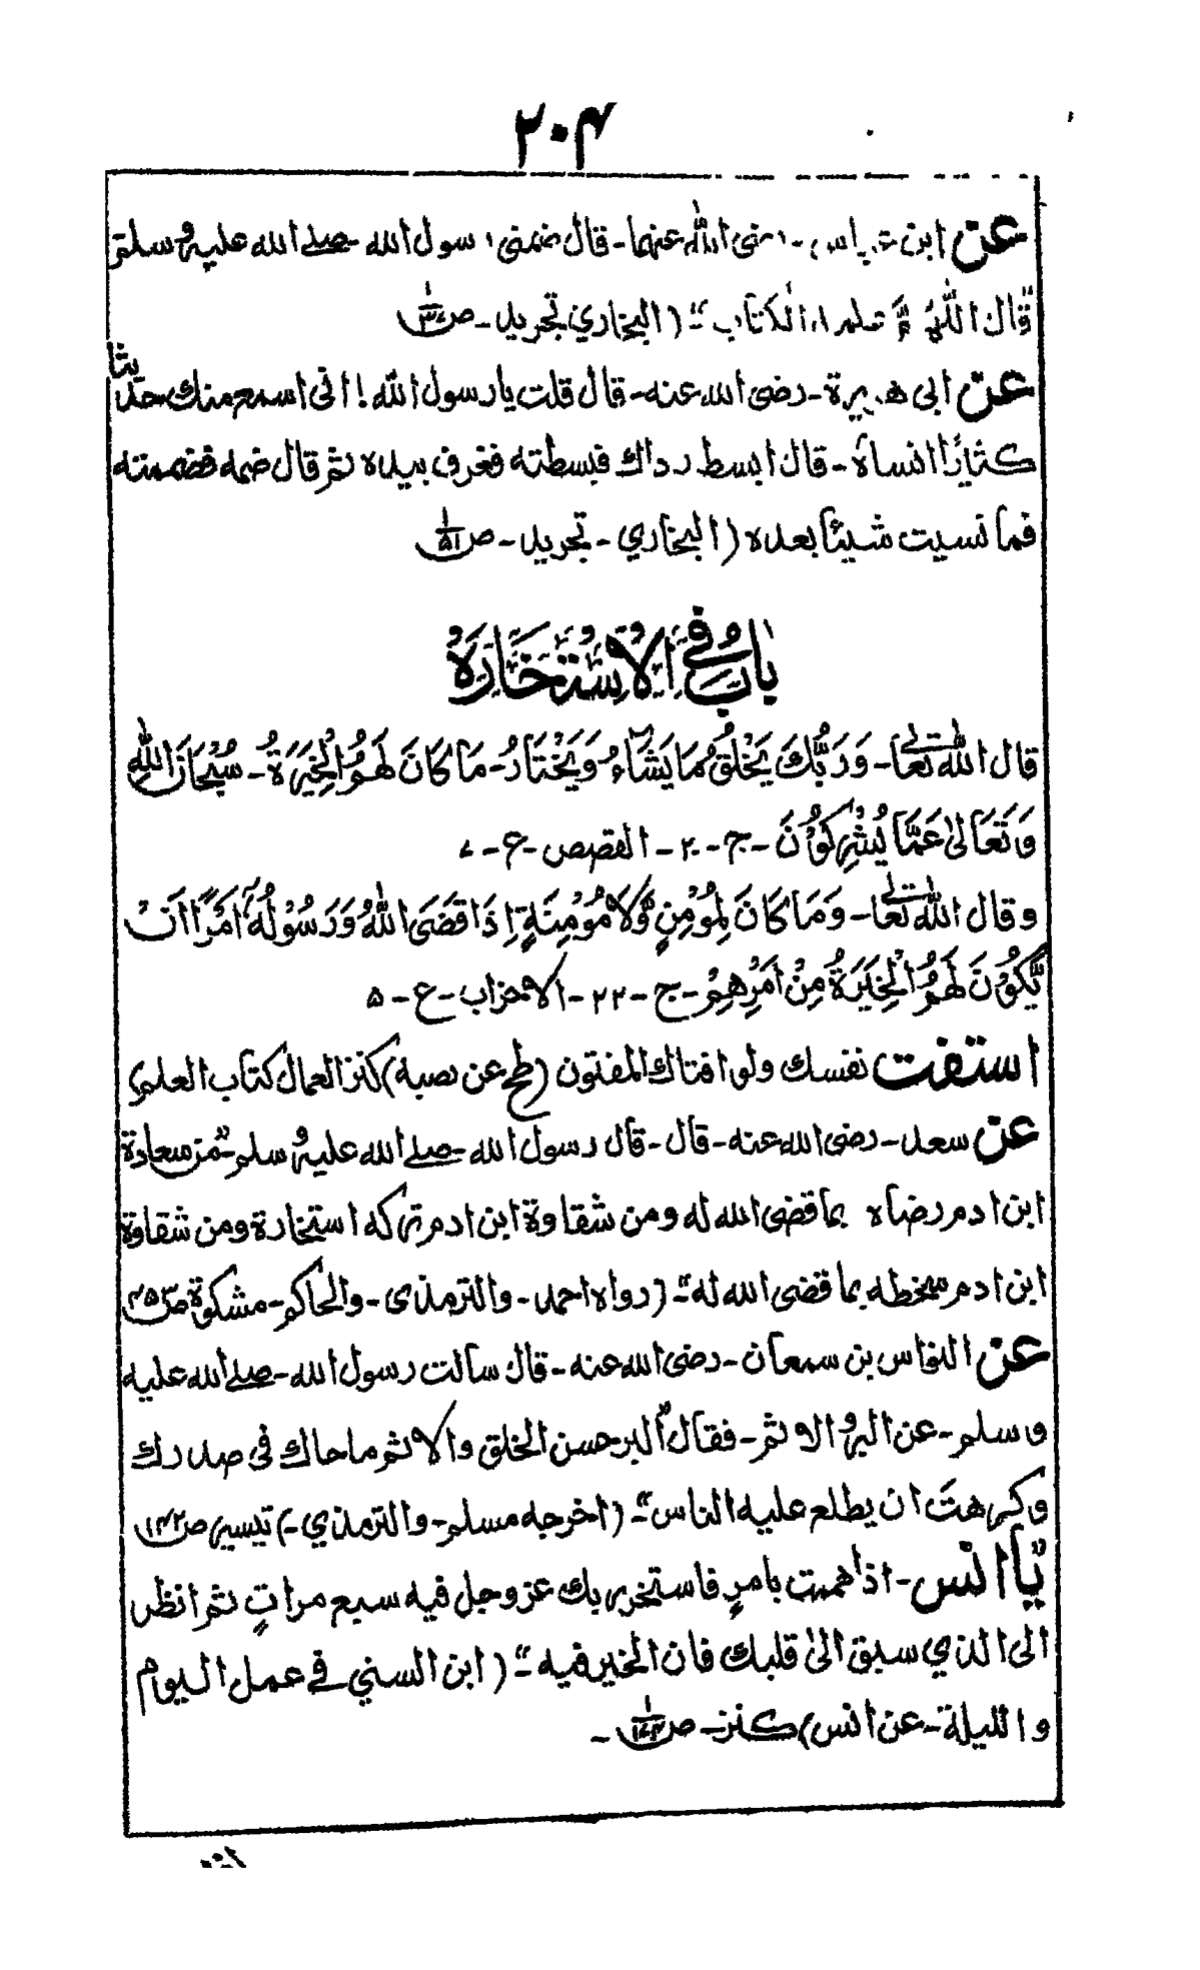 ۲۰۴
عن ابن عباس - رضی الله عنهما - قال ضمنی رسول الله - صلے الله علیه و سلم
و قال اللّٰهُمَّ علمه الکتاب "- (البخاري تجرید - ص
عن ابی هریرة - رضی الله عنه - قال قلت یا رسول الله! انی اسمع منك حدیثا
کثیرًا انساه - قال ابسط رداك فبسطته فغرف بیده ثم قال ضمه فضممته
فما نسیت شیئاً بعده (البخاري - تجرید - ص ۱/۵۱
بَابٌ فِے الْاِسْتِخَارَةِ
قال الله تعالےٰ - وَرَبُّكَ یَخْلُقُ مَا یَشَآءُ وَیَخْتَارُ - مَا کَانَ لَهُمُ الْخِیَرَةُ - سُبْحَانَ اللهِ
وَتَعَالیٰ عَمَّا یُشْرِکُوْنَ - ج - ۲۰ - القصص - ع - ۷
و قال الله تعالےٰ - وَمَا کَانَ لِمُؤْمِنٍ وَّلَا مُؤْمِنَةٍ اِذَا قَضَی اللهُ وَرَسُوْلُهٗ اَمْرًا اَنْ
یَّکُوْنَ لَهُمُ الْخِیَرَةُ مِنْ اَمْرِهِمْ - ج - ۲۲ - الاحزاب - ع - ۵
استفت نفسك ولو افتاك المفتون (طح عن نصبة) کنز العمال کتاب العلم
عن سعد - رضی الله عنه - قال - قال رسول الله - صلے الله علیه و سلم - "من سعادة
ابن ادم رضاه بما قضی الله له و من شقاوة ابن ادم ترکه استخارة و من شقاوة
ابن ادم سخطه بما قضی الله له "- (رواه احمد - والترمذی - والحاکم - مشکوة ص ۴۵۲
عن النواس بن سمعان - رضی الله عنه - قال سالت رسول الله - صلے الله علیه
و سلم - عن البر و الاثم - فقال "البر حسن الخلق و الاثم ما حاك فی صدرك
و کرهتَ ان یطلع علیه الناس "- (اخرجه مسلم - والترمذي -) تیسیر ص ۱۴۲
یا انس - اذا هممت بامرٍ فاستخر ربك عز و جل فیه سبع مراتٍ ثم انظر
الی الذي سبق الیٰ قلبك فان الخیر فیه "- (ابن السني فے عمل الیوم
و اللیلة - عن انس) کنز - ص -